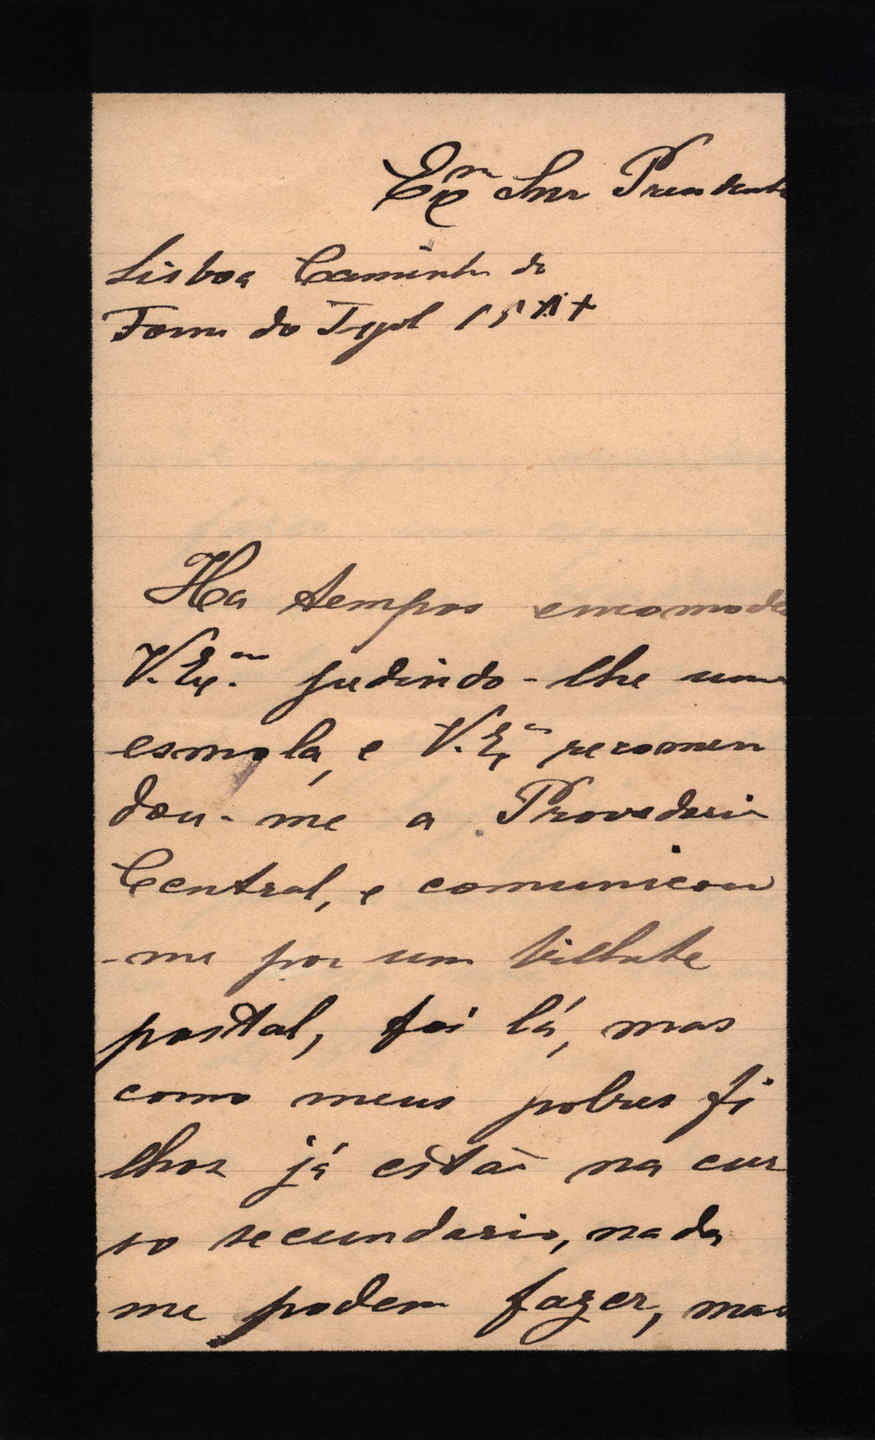 Exᵐ Snr Presidente
Lisboa Caminho do
Forno do Tijol 15
Ha tempos encomodei
V. Exᵐ pedindo-lhe uma
esmola, e V. Exᵐ recomen
dou-me a Provedoria
Central, e comunicou
-me por um bilhete
postal, fui lá, mas
como meus pobres fi
lhos já estão no cur
so secundario, nada
me podem fazer, mas